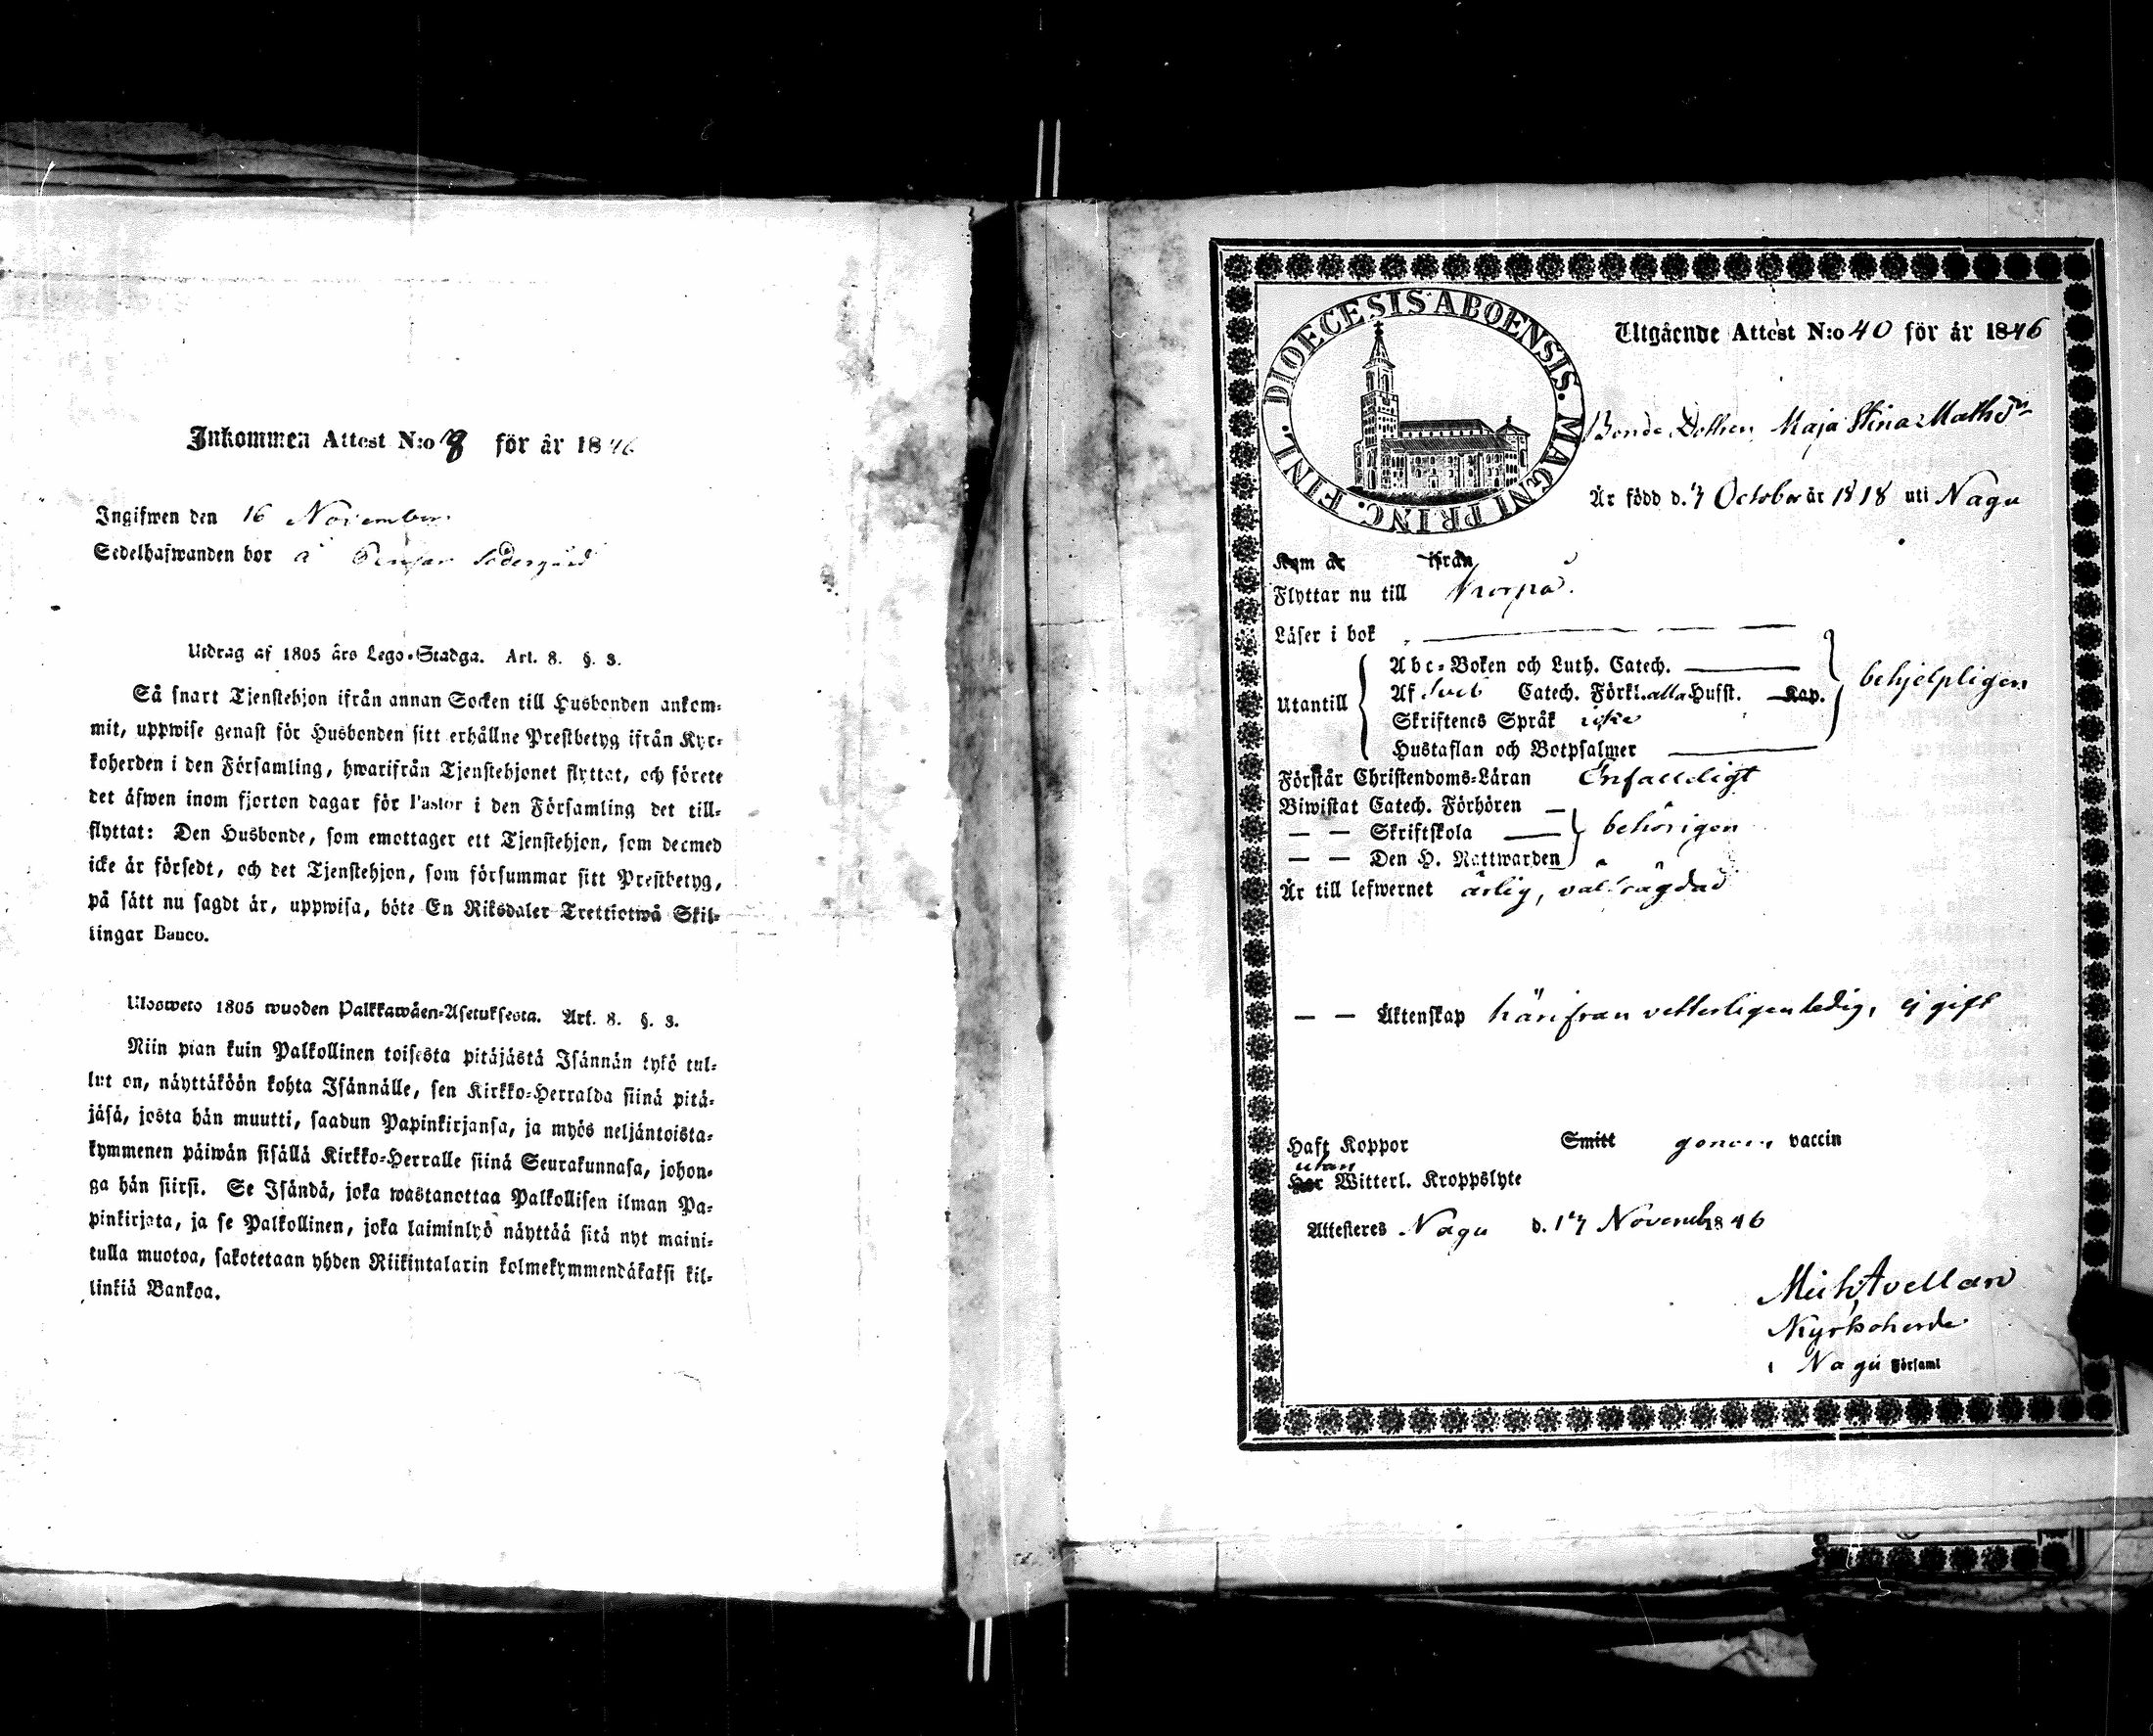 Inkommen Attest N:o 8 för år 1846
Ingifwen den 16 November
Sedelhafwanden bor å Pensar Södergård
Utdrag af 1805 års Lego-Stadga. Art. 8. §. 3.
Så snart Tjenstehjon ifrån annan Socken till Husbonden ankom-
mit, uppwise genast för Husbonden sitt erhållne Prestbetyg ifrån Kyr-
koherden i den Församling, hwarifrån Tjenstehjonet flyttat, och förete
det äfwen inom fjorton dagar för Pastor i den Församling det till-
flyttat: Den Husbonde, som emottager ett Tjenstehjon, som dermed
icke är försedt, och det Tjenstehjon, som försummar sitt Prestbetyg,
på sätt nu sagdt är, uppwisa, böte En Riksdaler Trettiotwå Skil-
lingar Banco.
Ulosweto 1805 wuoden Palkkawäen-Asetuksesta. Art. 8. §. 3.
Niin pian kuin Palkollinen toisesta pitäjästä Isännän tykö tul-
lut on, näyttäköön kohta Isännälle, sen Kirkko-Herralda siinä pitä-
jäsä, josta hän muutti, saadun Papinkirjansa, ja myös neljäntoista-
kymmenen päiwän sisällä Kirkko-Herralle siinä Seurakunnasa, johon-
ga hän siirsi. Se Isändä, joka wastanottaa Palkollisen ilman Pa-
pinkirjata, ja se Palkollinen, joka laiminlyö näyttää sitä nyt maini-
tulla muotoa, sakotetaan yhden Riikintalarin kolmekymmendäkaksi kil-
linkiä Bankoa.
DIOECESIS ABOENSIS. MAGNI PRINC. FINL.
Utgående Attest N:o 40 för år 1846
Bonde Dottren Maja Stina Mathsdr
Är född d. 7 October år 1818 uti Nagu
Kom år ifrån
Flyttar nu till Korpo.
Läser i bok
Utantill
Abc-Boken och Luth. Catech.
Af Sveb Catech. Förkl. alla Husst. Kap.
behjelpligen
Skriftenes Språk icke
Hustaflan och Botpsalmer
Förstår Christendoms-Läran Enfaldeligt
Biwistat Catech. Förhören
— — Skriftskola
behörigen
— — Den H. Nattwarden
Är till lefwernet ärlig, väl frägdad
— — Äktenskap härifrån vetterligen ledig, ej gift
Haft Koppor Smitt genom vaccin
utan
Har Witterl. Kroppslyte
Attesteres Nagu d. 17 Novemb 1846
Mich Avellan
Kyrkoherde
i Nagu Församl